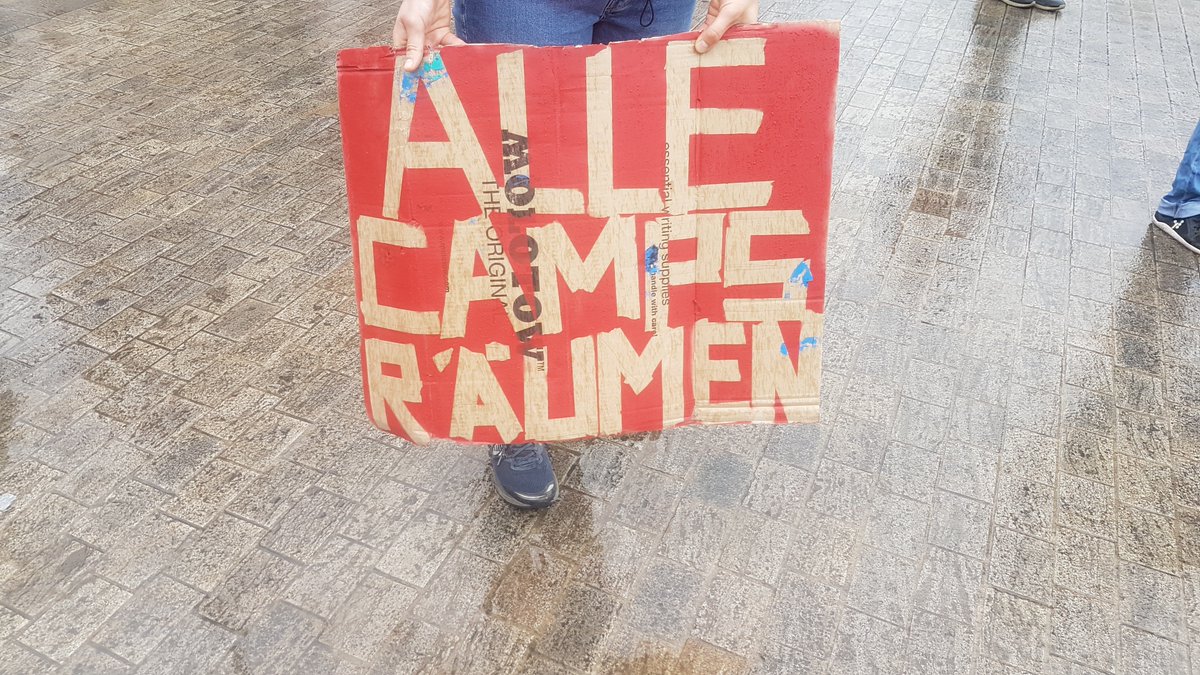 ALLE
CAMPS
RÄUMEN
MOLOTOW™
THE ORIGINAL
essential writing supplies
handle with care!